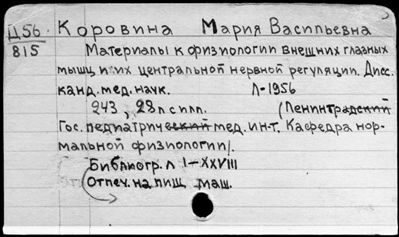 Д56. Коровина Мария Васильевна
815 Материалы к физиологии внешних глазных
мышц и их центральной нервной регуляции. Дисс.
канд. мед. наук. Л-1956
243, 28 л с илл. (Ленинградский
Гос. педиатрический мед. ин-т. Кафедра нор-
мальной физиологии/.
Библиогр. л I-XXVIII
Отпеч. на пиш. маш.